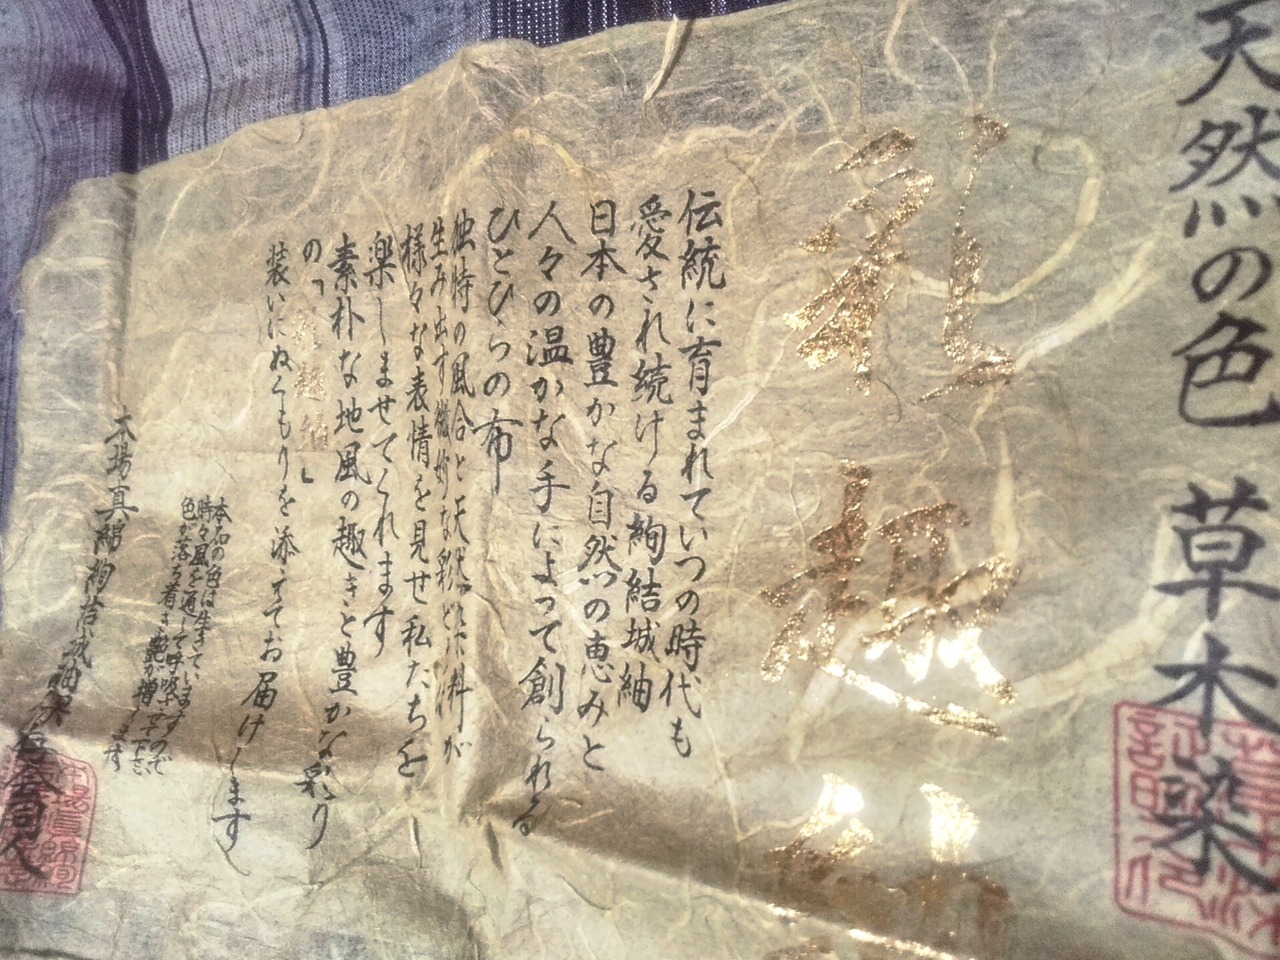 天然の色 草木染
伝統に育まれていつの時代も
愛され続ける絢結城紬
日本の豊かな自然の恵みと
人々の温かな手によって創られる
ひとひらの布
独特の風合と天然染料が
生み出す微妙な彩と
様々な表情を見せ私たちを
楽しませてくれます
素朴な地風の趣きと豊かな彩り
の「」
装いにぬくもりを添えてお届けします
本品の色は生きています
時々風を通して呼吸
色が落ち着き艶が増します
本場真綿